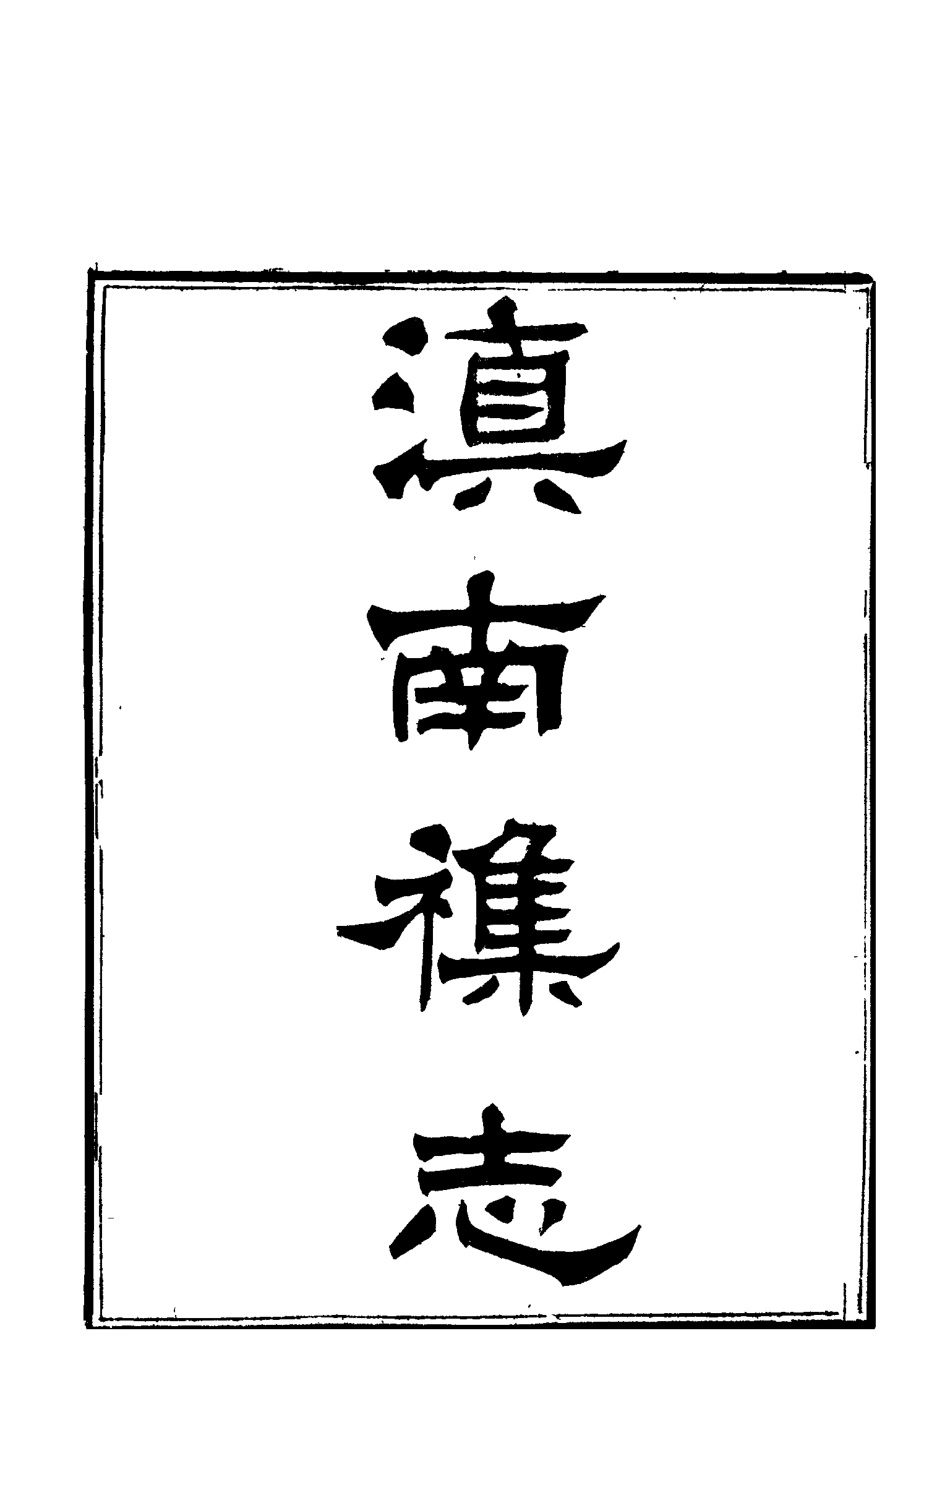 滇南襍志